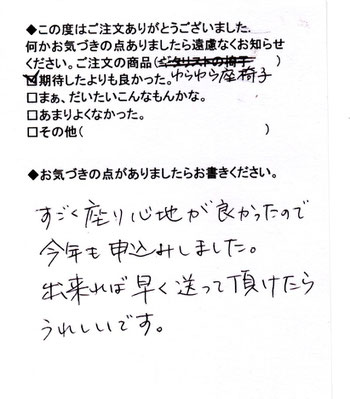 ◆この度はご注文ありがとうございました.
何かお気づきの点ありましたら遠慮なくお知らせ
ください。ご注文の商品(ギタリストの椅子 )
☑期待したよりも良かった。ゆらゆら座椅子
□まぁ、だいたいこんなもんかな。
□あまりよくなかった。
□その他( )
◆お気づきの点がありましたらお書きください。
すごく座り心地が良かったので
今年も申込みしました。
出来れば早く送って頂けたら
うれしいです。